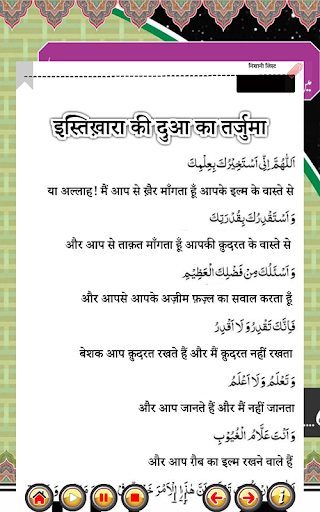 निशानी लिस्ट
इस्तिख़ारा की दुआ का तर्जुमा
اَللّٰهُمَّ اِنِّىْ اَسْتَخِيْرُكَ بِعِلْمِكَ
या अल्लाह! मैं आप से ख़ैर माँगता हूँ आपके इल्म के वास्ते से
وَاَسْتَقْدِرُكَ بِقُدْرَتِكَ
और आप से ताक़त माँगता हूँ आपकी क़ुदरत के वास्ते से
وَاَسْئَلُكَ مِنْ فَضْلِكَ الْعَظِيْمِ
और आपसे आपके अज़ीम फ़ज़्ल का सवाल करता हूँ
فَاِنَّكَ تَقْدِرُ وَلَا اَقْدِرُ
बेशक आप क़ुदरत रखते हैं और मैं क़ुदरत नहीं रखता
وَتَعْلَمُ وَلَا اَعْلَمُ
और आप जानते हैं और मैं नहीं जानता
وَاَنْتَ عَلَّامُ الْغُيُوْبِ
और आप ग़ैब का इल्म रखने वाले हैं
14